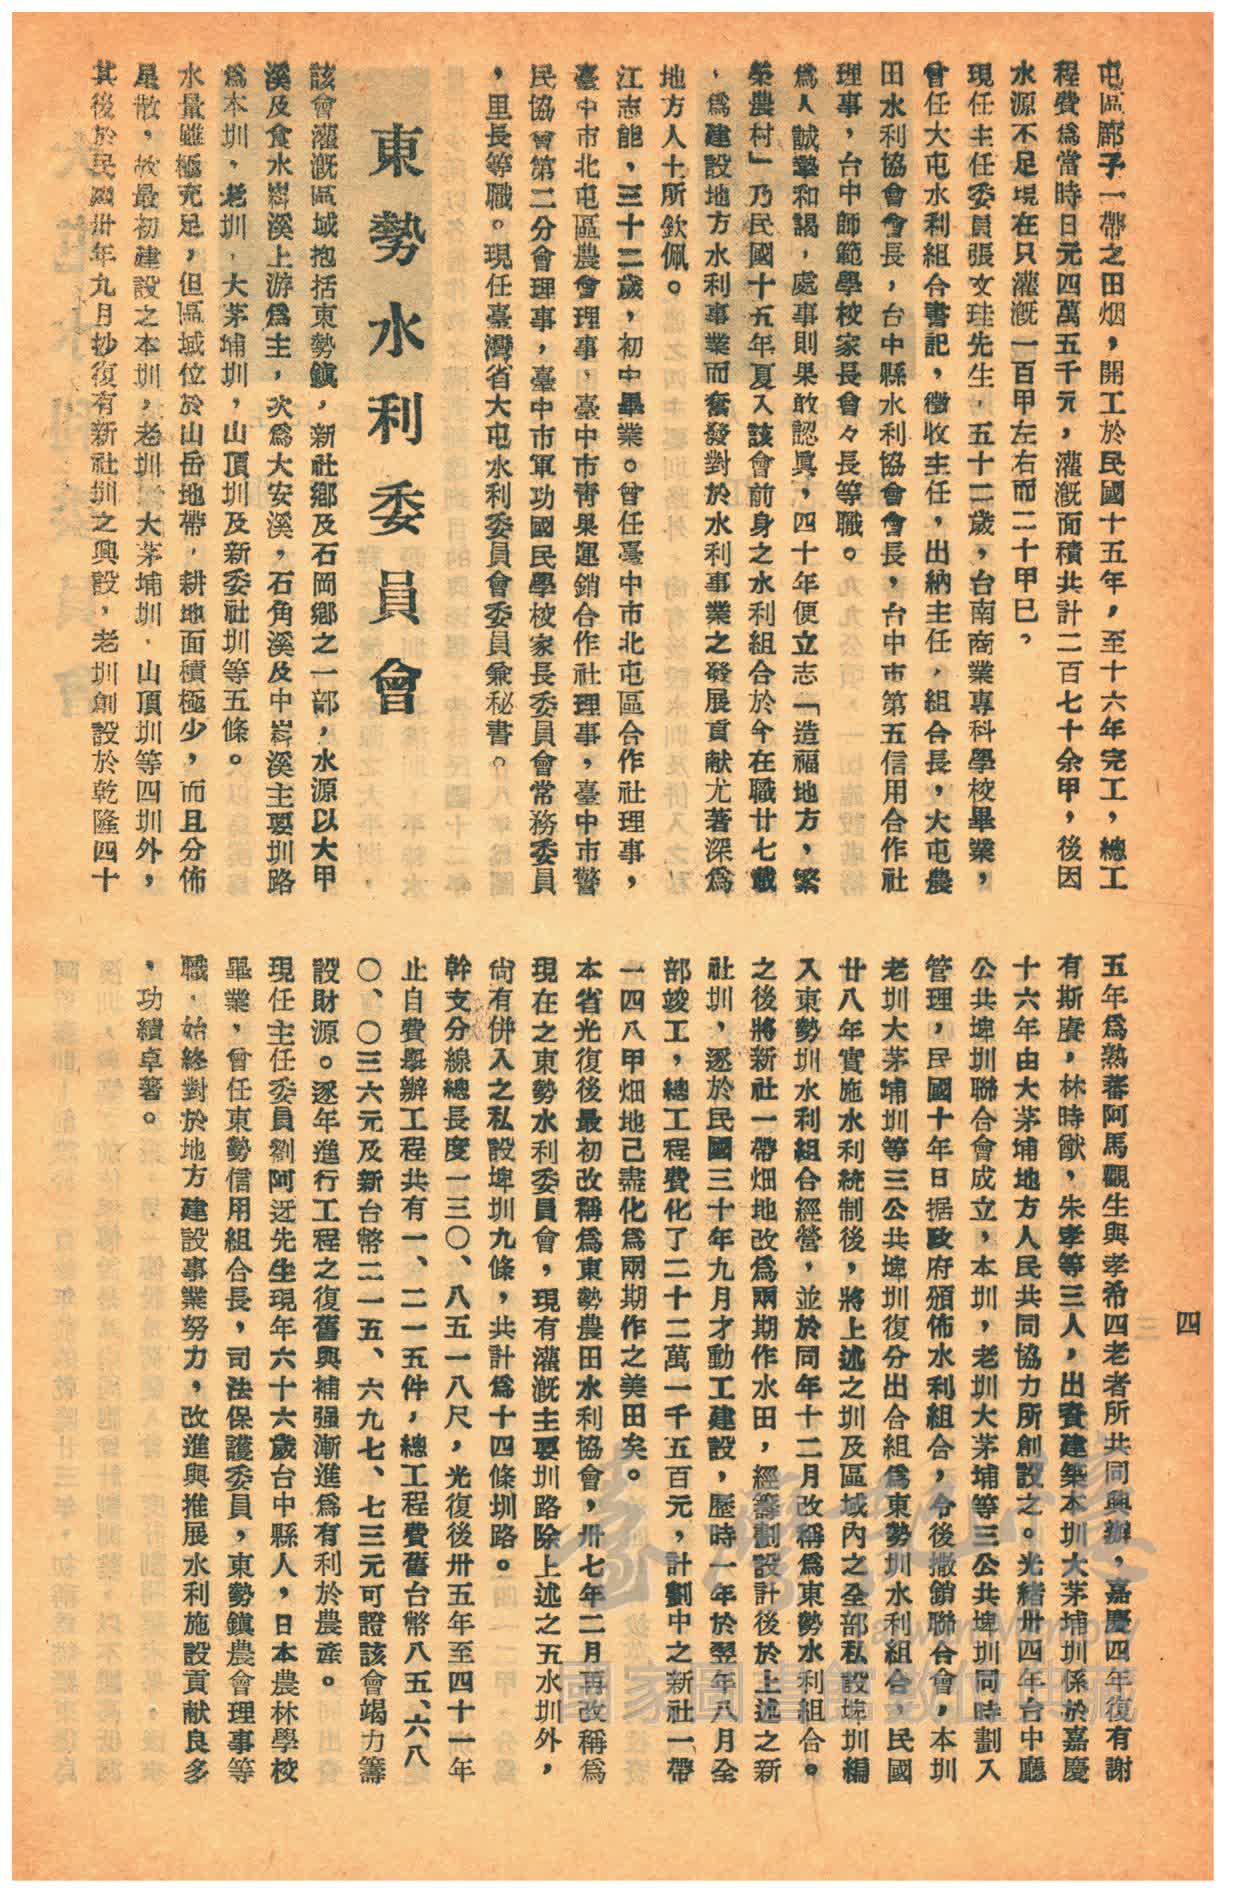 屯區廊子一帶之田烟，開工於民國十五年，至十六年完工，總工
程費爲當時日元四萬五千元，灌漑面積共計二百七十余甲，後因
水源不足現在只灌漑一百甲左右而二十甲已。
現任主任委員張文珪先生，五十二歲，台南商業專科學校畢業，
曾任大屯水利組合書記，徵收主任，出納主任，組合長，大屯農
田水利協會會長，台中縣水利協會會長，台中市第五信用合作社
理事，台中師範學校家長會々長等職。
爲人誠摯和謁，處事則果敢認眞，四十年便立志「造福地方，繁
榮農村」乃民國十五年夏入該會前身之水利組合於今在職廿七載
，爲建設地方水利事業而奮發對於水利事業之發展貢献尤著深爲
地方人士所欽佩。
江志能，三十二歲，初中畢業。曾任臺中市北屯區合作社理事，
臺中市北屯區農會理事，臺中市靑果運銷合作社理事，臺中市警
民協會第二分會理事，臺中市軍功國民學校家長委員會常務委員
，里長等職。現任臺灣省大屯水利委員會委員兼秘書。
東勢水利委員會
該會灌漑區域抱括東勢鎭，新社鄉及石岡鄉之一部，水源以大甲
溪及食水嵙溪上游爲主，次爲大安溪，石角溪及中嵙溪主要圳路
爲本圳，老圳，大茅埔圳，山頂圳及新委社圳等五條。
水量雖極充足，但區域位於山岳地帶，耕地面積極少，而且分佈
星散，故最初建設之本圳，老圳，大茅埔圳，山頂圳等四圳外，
其後於民國卅年九月抄復有新社圳之興設，老圳創設於乾隆四十
五年爲熟蕃阿馬觀生與孝希四老者所共同興辦，嘉慶四年復有謝
有斯賡，林時猷，朱孝等三人，出資建築本圳大茅埔圳係於嘉慶
十六年由大茅埔地方人民共同協力所創設之。光緒卅四年台中廳
公共埤圳聯合會成立，本圳，老圳大茅埔等三公共埤圳同時劃入
管理，民國十年日据政府頒佈水利組合，令後撤銷聯合會，本圳
老圳大茅埔圳等三公共埤圳復分出合組爲東勢圳水利組合，民國
廿八年實施水利統制後，將上述之圳及區域內之全部私設埤圳編
入東勢圳水利組合經營，並於同年十二月改稱爲東勢水利組合。
之後將新社一帶畑地改爲兩期作水田，經籌劃設計後於上述之新
社圳，逐於民國三十年九月才動工建設，歷時一年於翌年八月全
部竣工，總工程費化了二十二萬一千五百元，計劃中之新社一帶
一四八甲畑地已盡化爲兩期作之美田矣。
本省光復後最初改稱爲東勢農田水利協會，卅七年二月再改稱爲
現在之東勢水利委員會，現有灌漑主要圳路除上述之五水圳外，
尙有併入之私設埤圳九條，共計爲十四條圳路。
幹支分線總長度一三〇、八五一八尺，光復後卅五年至四十一年
止自費舉辦工程共有一、二一五件，總工程費舊台幣八五、六八
〇、〇三六元及新台幣二一五、六九七、七三元可證該會竭力籌
設財源。逐年進行工程之復舊與補强漸進爲有利於農產。
現任主任委員劉阿迓先生現年六十六歲台中縣人，日本農林學校
畢業，曾任東勢信用組合長，司法保護委員，東勢鎭農會理事等
職，始終對於地方建設事業努力，改進與推展水利施設貢献良多
，功績卓著。
四
臺灣記憶
Taiwan Memory
國家圖書館數位典藏